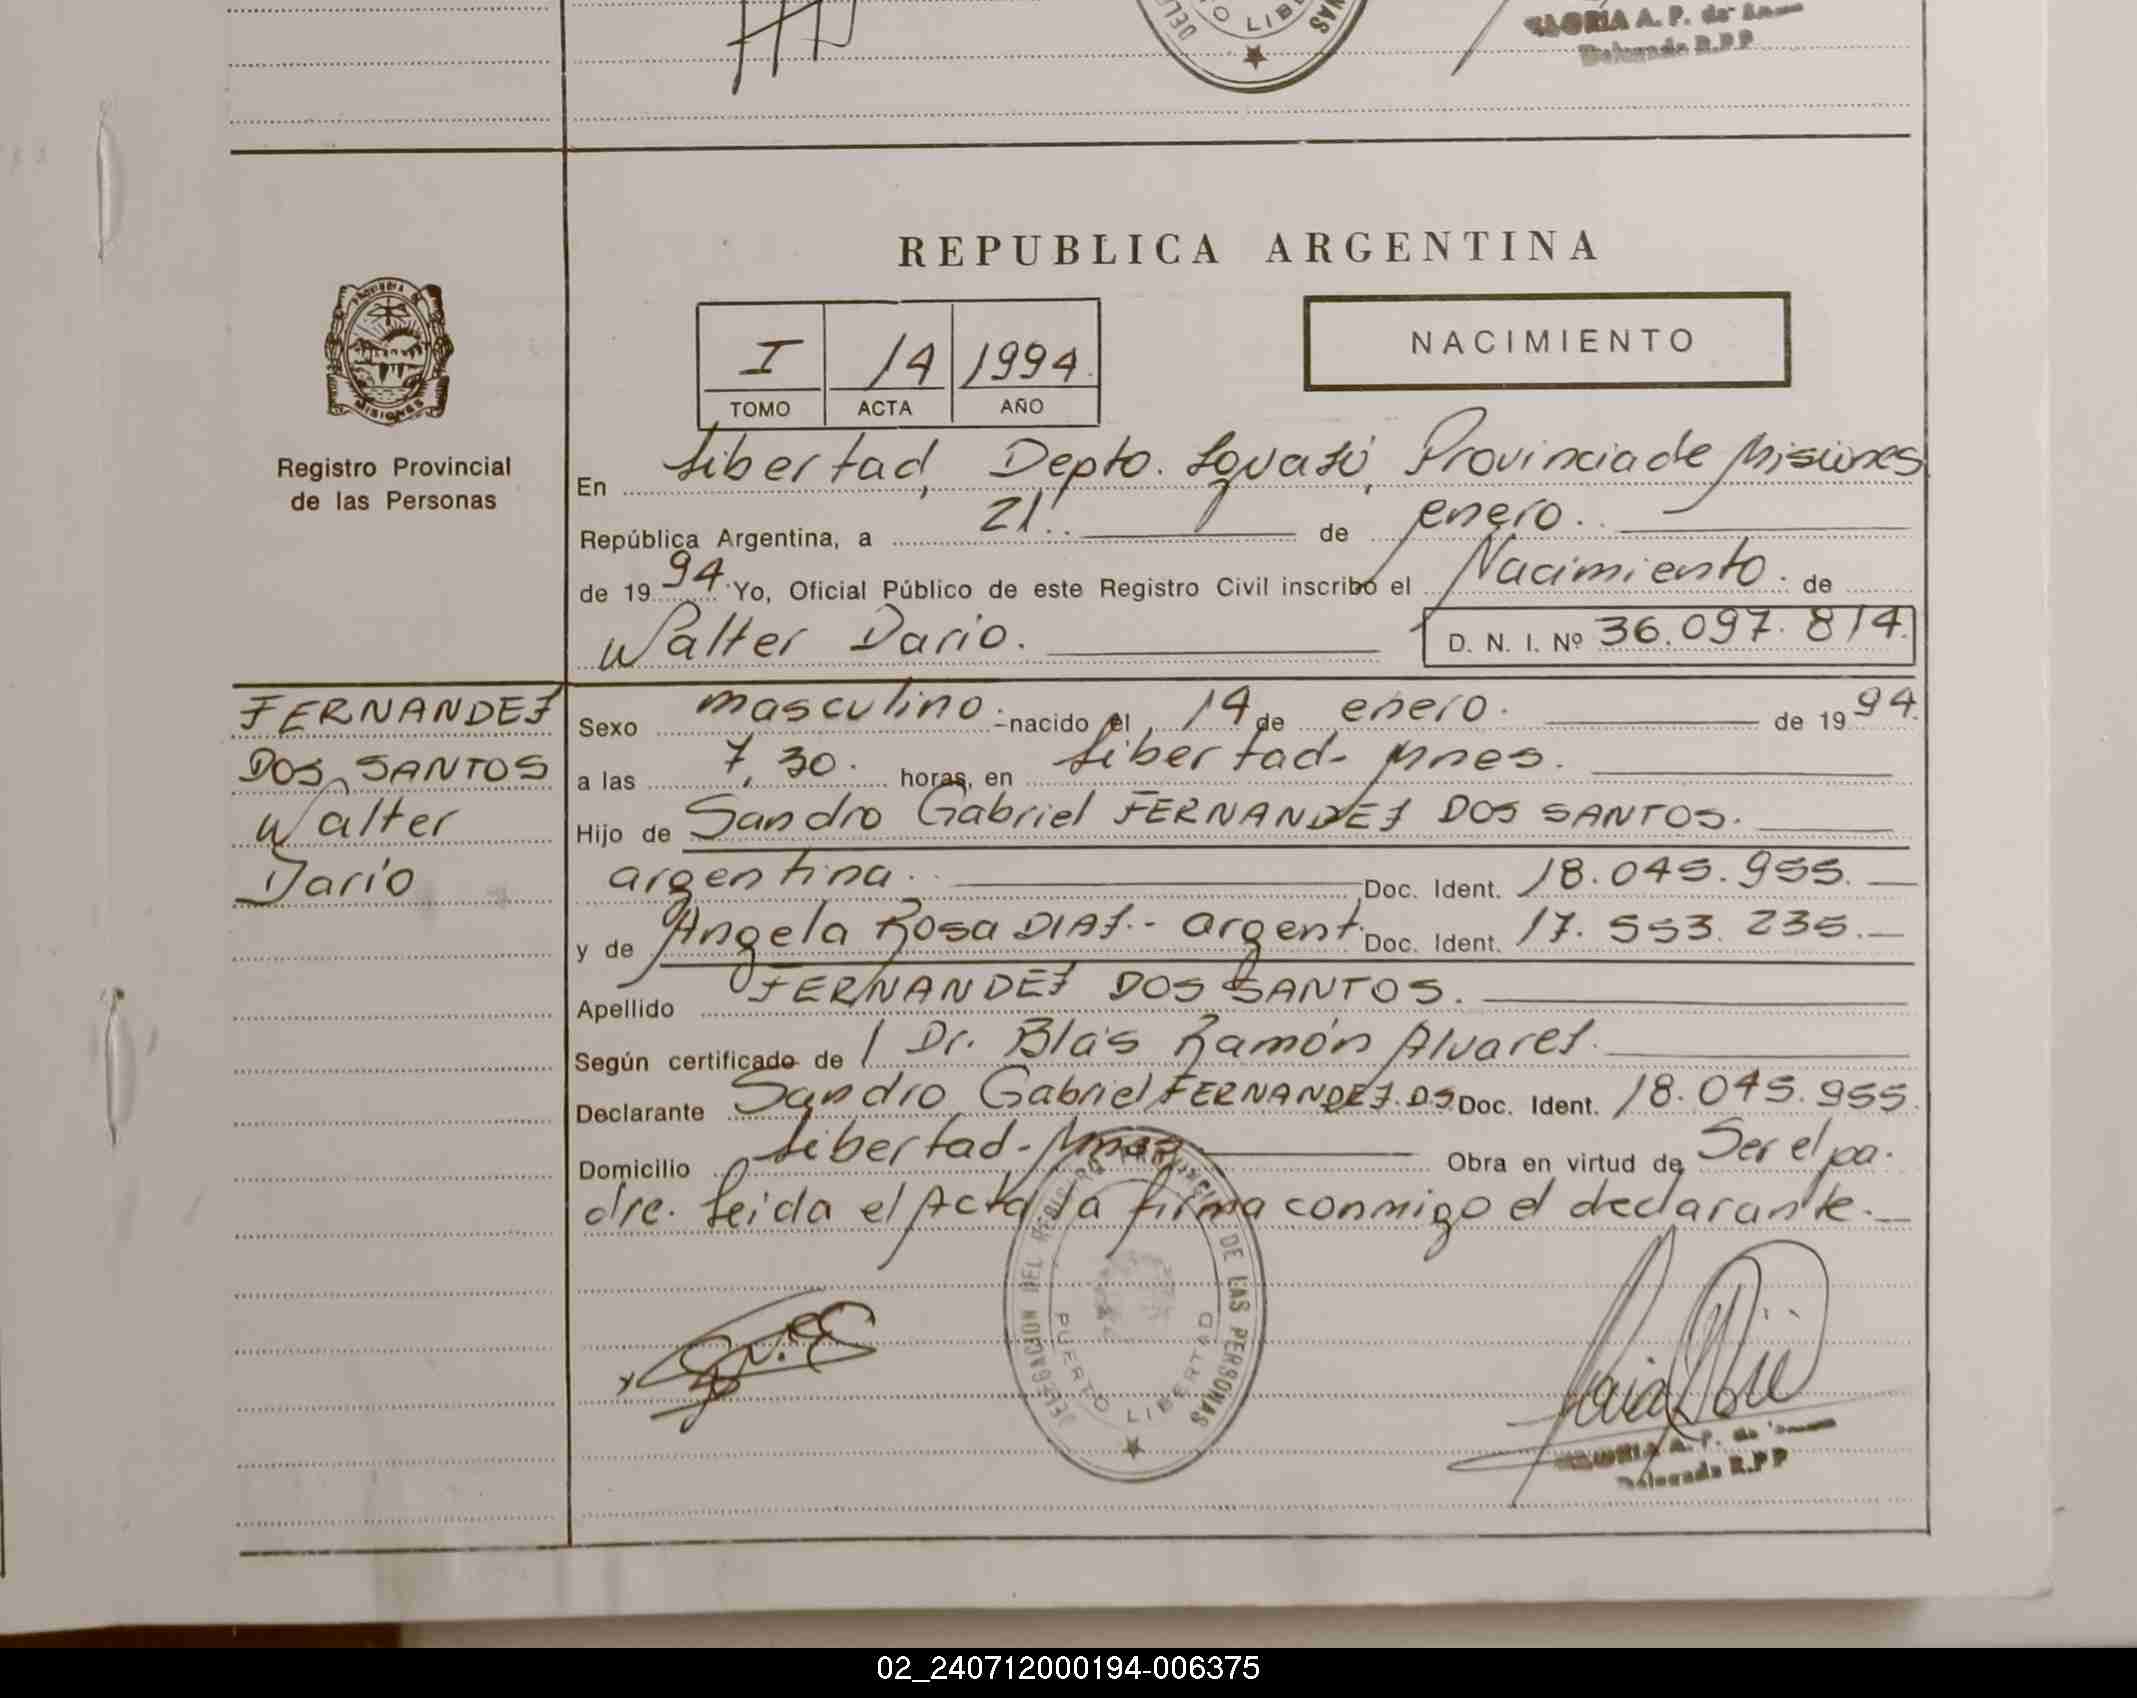 DEL
O LIB
NAS
GLORIA A. P. de
Delegada R.P.P
REPUBLICA ARGENTINA
PROVINCIA DE
MISIONES
Registro Provincial
de las Personas
I 14 1994
TOMO ACTA AÑO
NACIMIENTO
En Libertad, Depto. Iguazú, Provincia de Misiones
República Argentina, a 21. de enero.
de 1994. Yo, Oficial Público de este Registro Civil inscribo el Nacimiento. de
Walter Dario. D. N. I. Nº 36.097.814.
FERNANDEZ
DOS SANTOS
Walter
Darío
Sexo masculino.- nacido el 14 de enero. de 1994.
a las 7,30. horas, en Libertad- Mnes.
Hijo de Sandro Gabriel FERNANDEZ DOS SANTOS.
argentina. Doc. Ident. 18.045.955.
y de Angela Rosa DIAZ.- argent. Doc. Ident. 17.553.235.
Apellido FERNANDEZ DOS SANTOS.
Según certificado de / Dr. Blás Ramón Alvarez.
Declarante Sandro Gabriel FERNANDEZ. D S. Doc. Ident. 18.045.955.
Domicilio Libertad-Mnes Obra en virtud de Ser el pa.
dre. Leída el Acta la firma conmigo el declarante.
DELEGACION DEL REGISTRO PROVINCIAL DE LAS PERSONAS
PUERTO LIBERTAD
GLORIA A. P. de
Delegada R.P.P
02_240712000194-006375